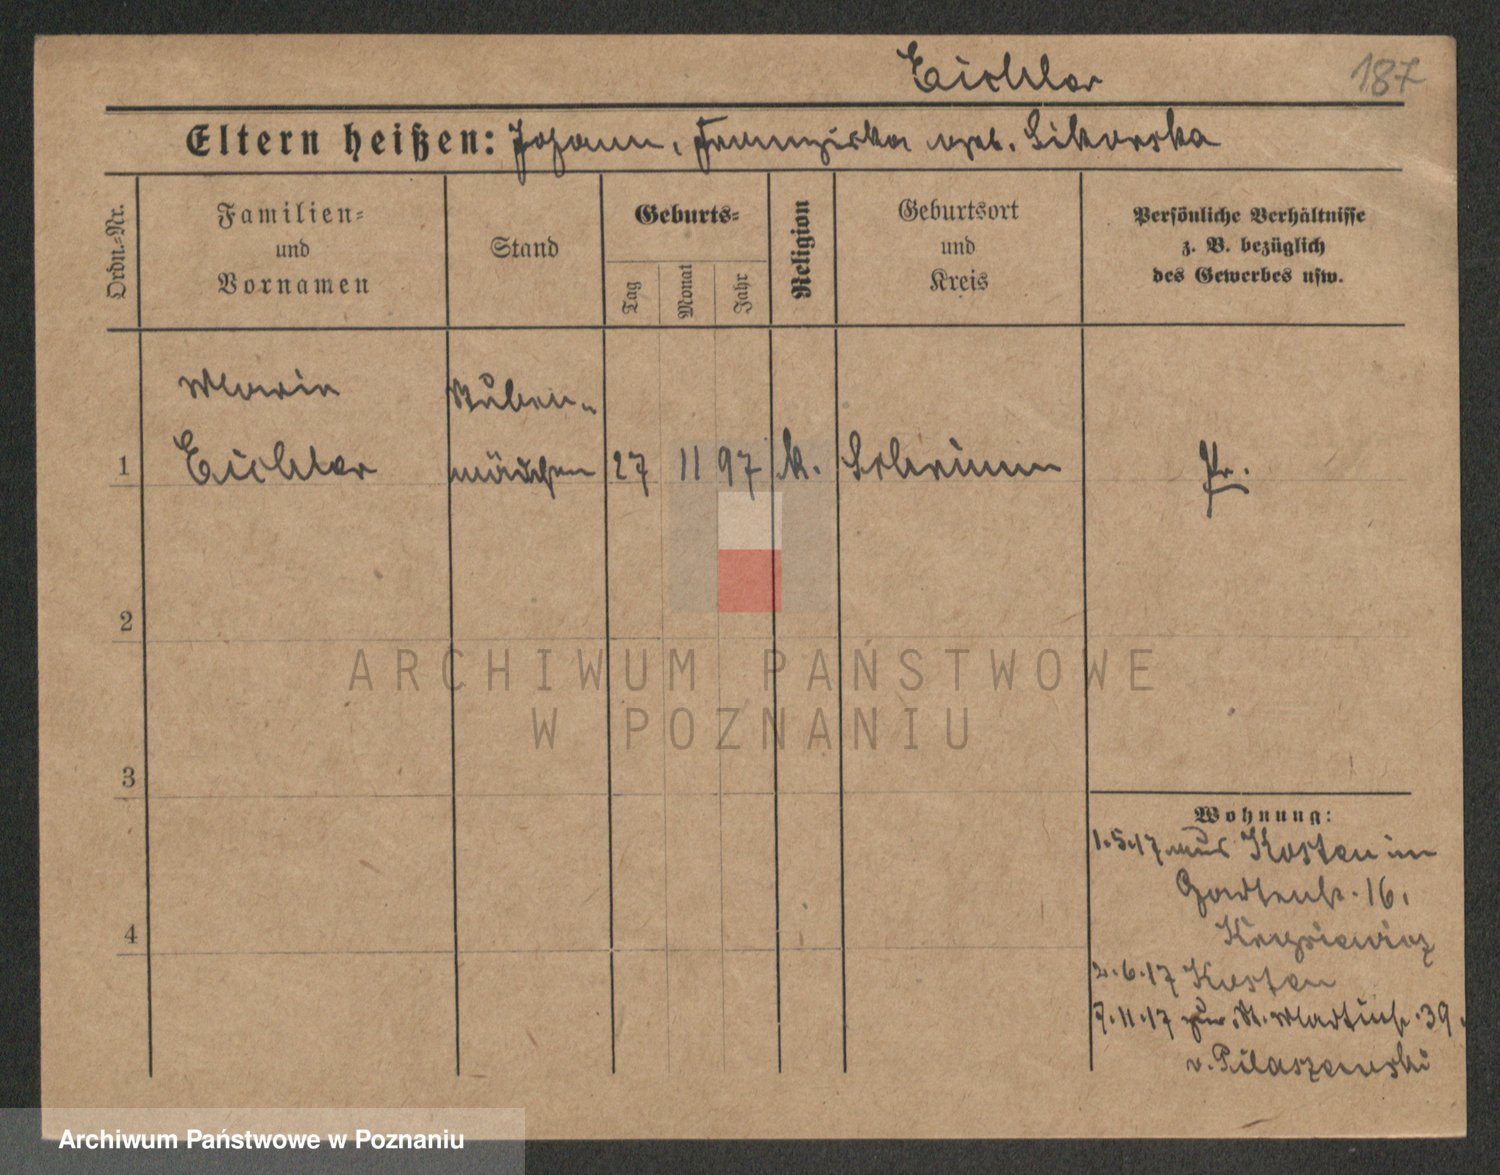 Eichler 187
Eltern heißen: Johann, Franziska geb. Sikorska
Ordn.-Nr.
Familien-
und
Vornamen
Stand
Geburts-
Tag
Monat
Jahr
Religion
Geburtsort
und
Kreis
Persönliche Verhältnisse
z. B. bezüglich
des Gewerbes usw.
Marie Stuben-
1 Eichler mädchen 27 11 97 k. Schrimm Pr.
2
3
4
Wohnung:
1.5.17 aus Kosten in
Gartenstr. 16.
2.6.17 Kosten
7.11.17 St. Martinstr. 39.
v. Pilaszewski
ARCHIWUM PAŃSTWOWE
W POZNANIU
Archiwum Państwowe w Poznaniu